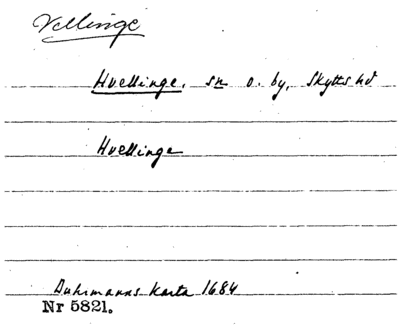 Vellinge
Hvellinge, sn o. by, Skytts hd
Hvellinge
Buhrmanns karta 1684
Nr 5821.